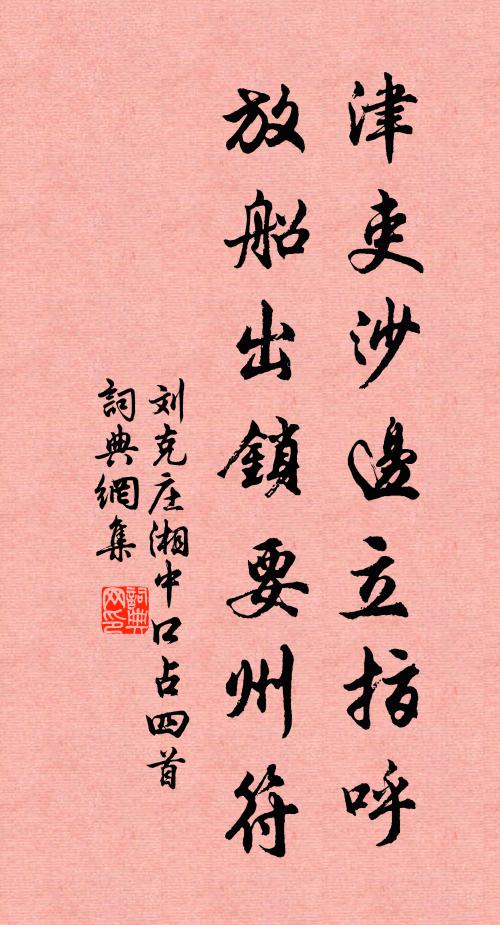 津吏沙邊立指呼
放船出鎖要州符
刘克庄湘中口占四首
詞典網集
詞典
网印